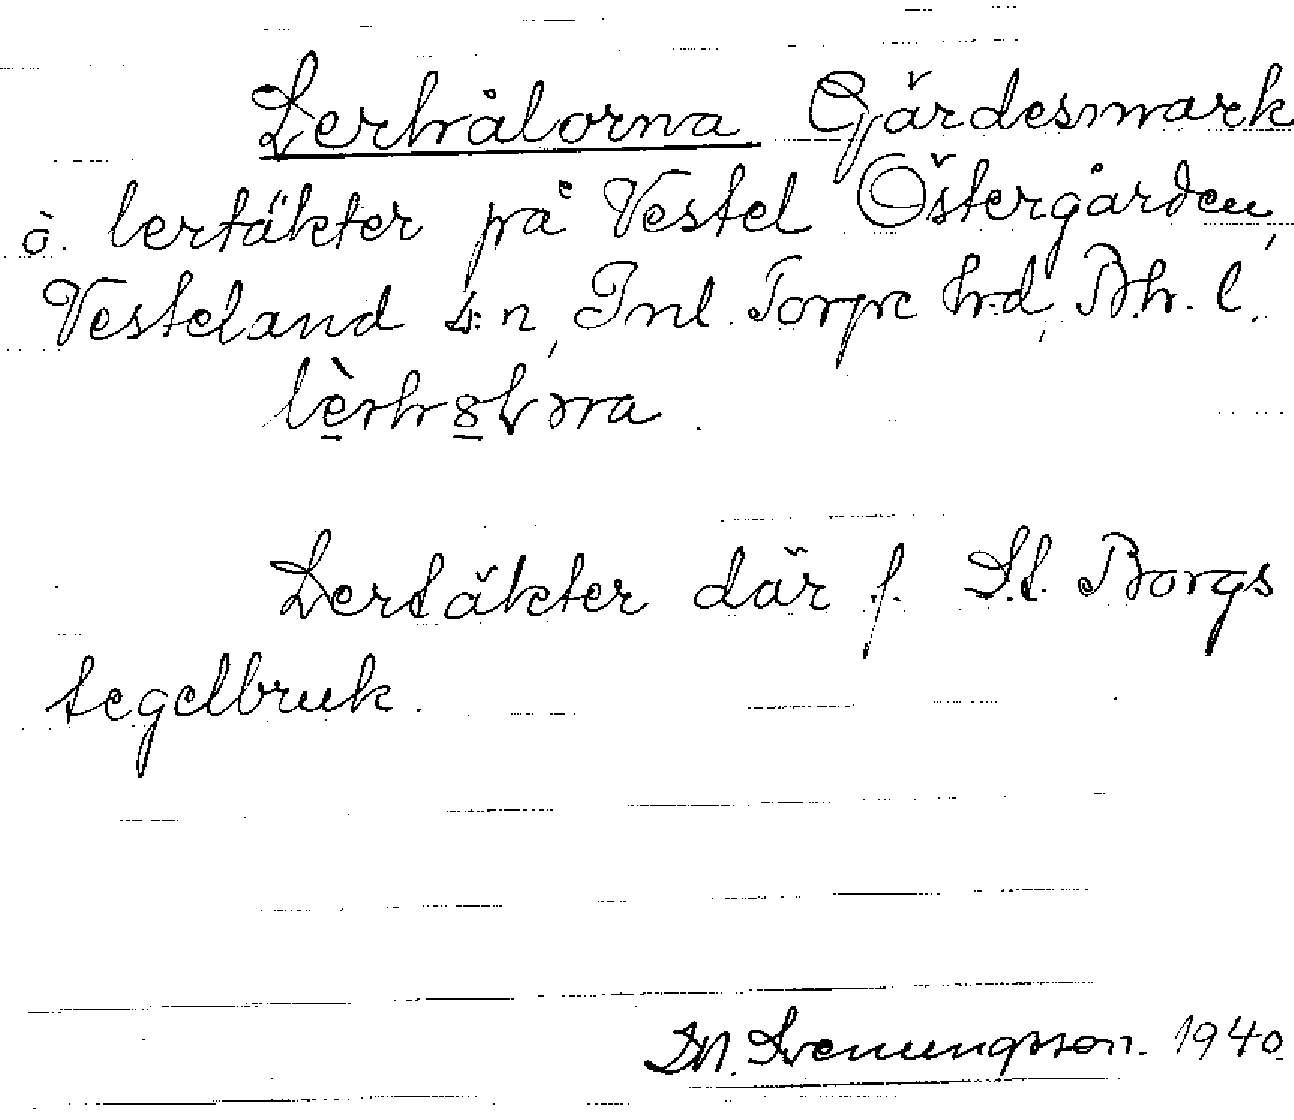 Lerhålorna Gärdesmark
o. lertäkter på Vestel Östergården,
Vesteland s:n, Inl. Torpe hd, Bh. l.
Lertäkter där f. St. Borgs
tegelbruk.
M. Svenungsson. 1940.